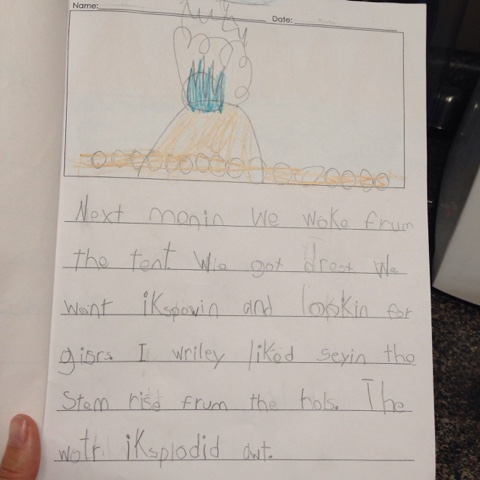 Name: Date:
Next monin We woke frum
the tent We got drest We
want iKspowin and lookin for
gisrs I wriley liked seyin the
Stem rise frum the hols. The
wotr iKsplodid awt.